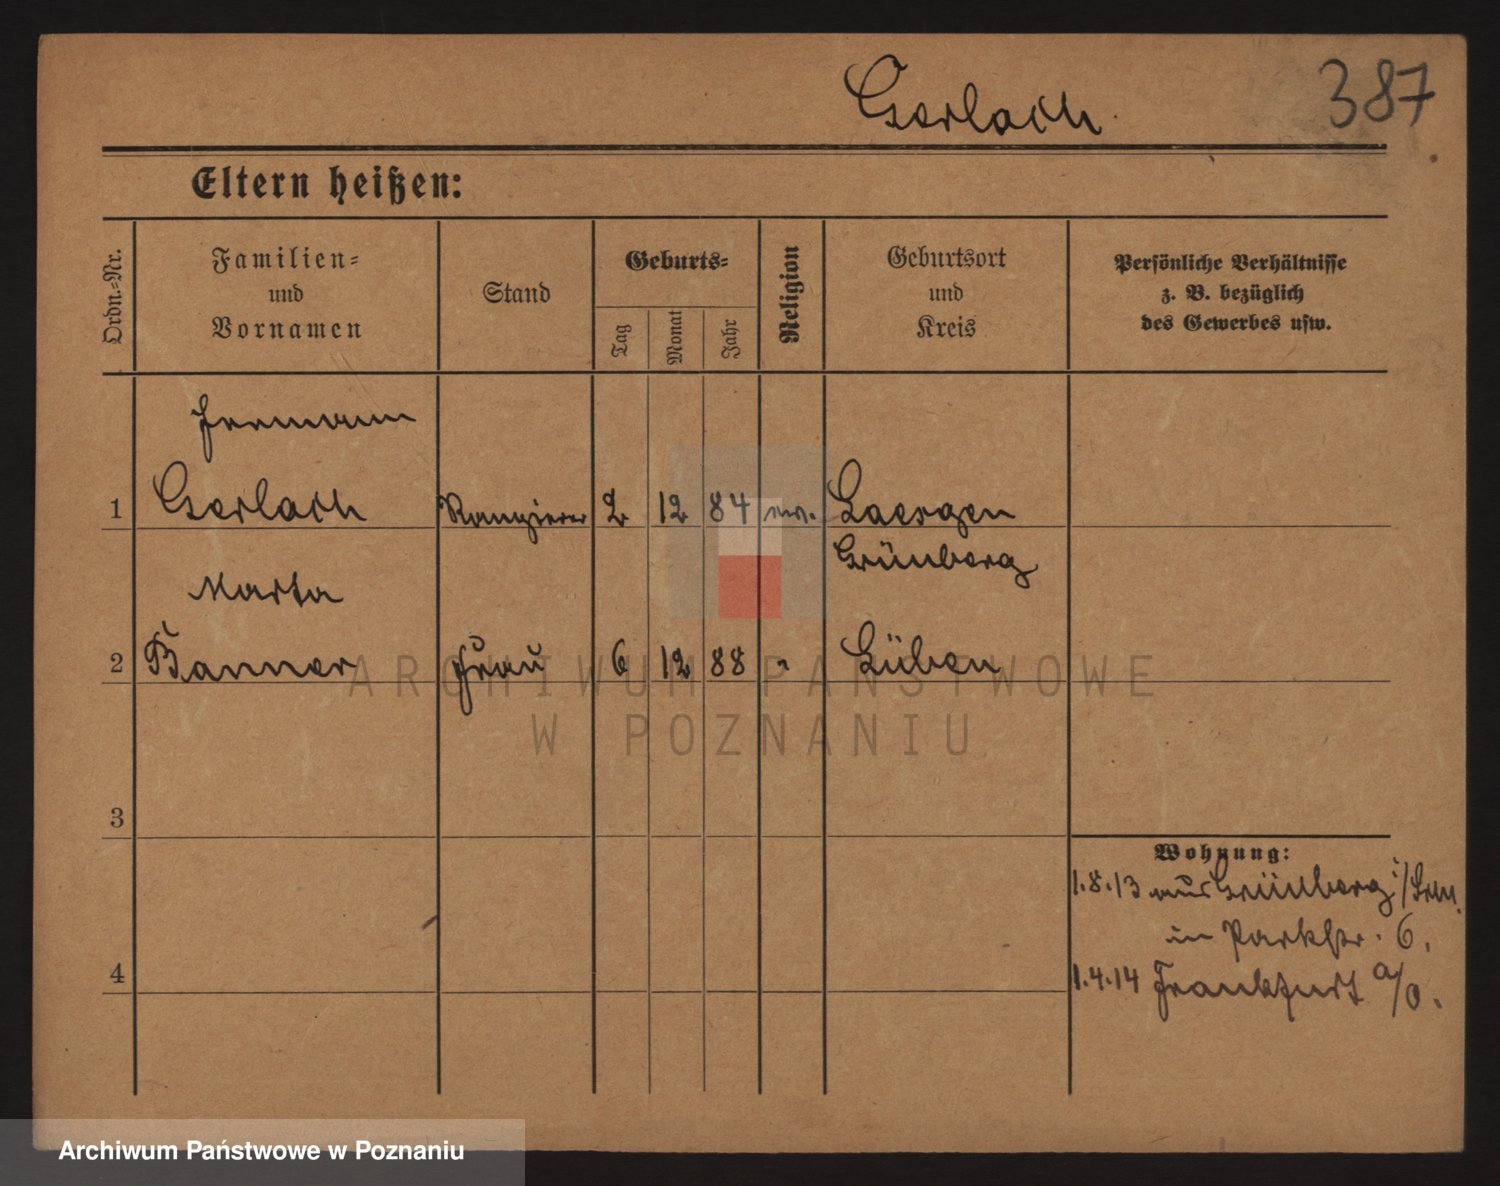 Gerlach
387
Eltern heißen:
Ordn.-Nr.
Familien-
und
Vornamen
Stand
Geburts-
Tag
Monat
Jahr
Religion
Geburtsort
und
Kreis
Persönliche Verhältnisse
z. B. bezüglich
des Gewerbes usw.
Hermann
1 Gerlach Rangierer 2 12 84 ev. Laesgen
Grünberg
Marta
2 Banner Frau 6 12 88 " Lüben
3
Wohnung:
1.8.13 aus Grünberg i/Schl.
in Parkstr. 6.
4
1.4.14 Frankfurt a/O.
ARCHIWUM PAŃSTWOWE
W POZNANIU
Archiwum Państwowe w Poznaniu